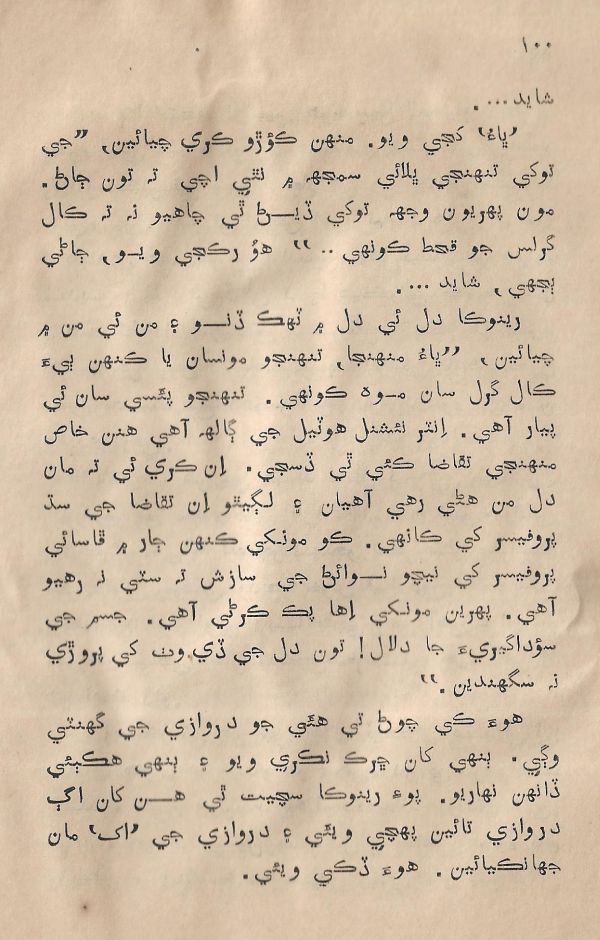 ۱۰۰
شايد... .
’ڀاءُ‘ ڪڃي ويو. منهن ڪؤڙو ڪري چيائين، ”جي
توکي تنهنجي ڀلائي سمجهہ ۾ نٿي اچي تہ تون ڄاڻ.
مون پهريون وجهہ توکي ڏيـــڻ ٿي چاهيو نہ تہ ڪال
گرلس جو قحط ڪونهي .. “ هوُ رڪجي ويـو، ڄاڻي
ٻجهي، شايد ... .
رينوڪا دل ئي دل ۾ ٽهڪ ڏنـــو ۽ من ئي من ۾
چيائين، ”ڀاءُ منهنجا، تنهنجو مونسان يا ڪنهن ٻيءَ
ڪال گرل سان مـوہ ڪونهي. تنهنجو پئسي سان ئي
پيار آهي. اِنٽر نئشنل هوٽيل جي ڳالهہ آهي هنن خاص
منهنجي تقاضا ڪئي ٿي ڏسجي. اِن ڪري ئي تہ مان
دل من هڻي رهي آهيان ۽ لڳيٿو اِن تقاضا جي سڌ
پروفيسر کي ڪانهي. ڪو مونکي ڪنهن ڄار ۾ ڦاسائي
پروفيسر کي نيچو نـــوائڻ جي سازش تہ سٽي نہ رهيو
آهي. پهرين مونکي اِها پڪ ڪرڻي آهي. جسم جي
سؤداگيريءَ جا دلال! تون دل جي ڏي وٺ کي پروڙي
نہ سگهندين.“
هوءَ ڪي چوڻ تي هئي جو دروازي جي گهنٽي
وڳي. ٻنهي کان ڇرڪ نڪري ويو ۽ ٻنهي هڪٻئي
ڏانهن نهاريو. پوءِ رينوڪا سچيت ٿي هـــن کان اڳ
دروازي تائين پهچي ويئي ۽ دروازي جي ’اک‘ مان
جهانڪيائين. هوءَ ڏڪي ويئي.